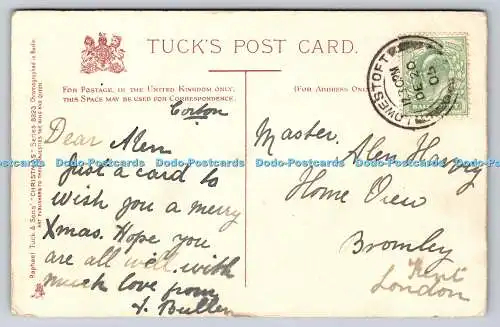 TUCK'S POST CARD.
FOR POSTAGE, IN THE UNITED KINGDOM ONLY,
THIS SPACE MAY BE USED FOR CORRESPONDENCE.
(FOR ADDRESS ONLY
Corton
Dear Alen
Just a card to
wish you a merry
Xmas. Hope you
are all well. with
much love from
Bullen
Master. Alen Harvey
Home View
Bromley
Kent
London
LOWESTOFT
Raphael Tuck & Sons' "CHRISTMAS" Series 8323.
Dodo-Postcards Dodo-Postcards Dodo-Postcards Dodo-Postcards Dodo-Postcards